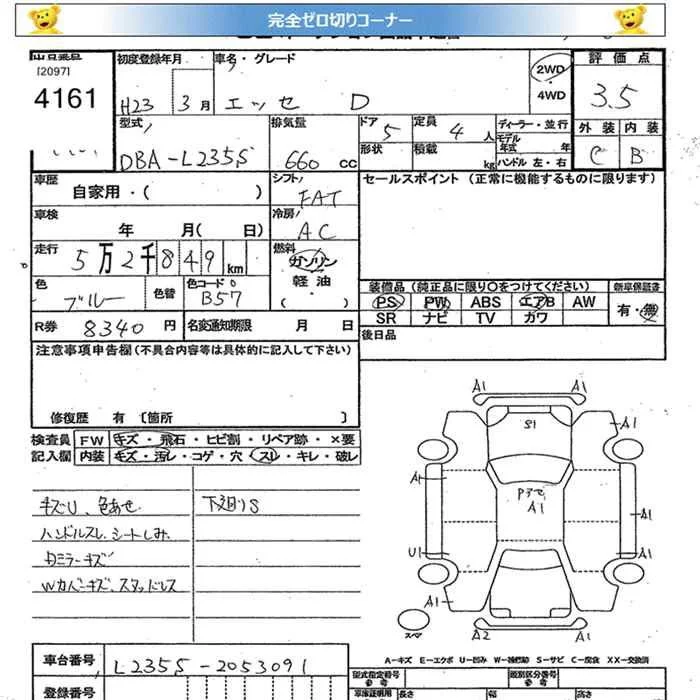 完全ゼロ切りコーナー
[2097]
4161
初度登録年月
H23 3月
車名・グレード
エッセ D
2WD
・
4WD
評価点
3.5
外装 内装
C B
型式
DBA-L235S
排気量
660 CC
ドア 5
形状
定員 4 人
積載 kg
ディーラー・並行
モデル年式 年
ハンドル 左・右
車歴
自家用・( )
シフト
FAT
セールスポイント (正常に機能するものに限ります)
車検 年 月(日)
冷房
AC
走行
5万2千849km
燃料
ガソリン
軽油
( ・ )
色
ブルー
色替
色コード
B57
装備品(純正品に限り○をつけてください)
新車保証書
PS PW ABS エアB AW
有・無
SR ナビ TV カワ
R券 8340円
名変通知期限 月 日
後日品
注意事項申告欄(不具合内容等は具体的に記入して下さい)
修復歴 有 [箇所 ]
検査員 FW キズ・飛石・ヒビ割・リペア跡・×要
記入欄 内装 キズ・汚レ・コゲ・穴・スレ・キレ・破レ
キズU、色あせ
下廻りS
ハンドルスレ、シートしみ
スタッドレス
A1 A1
S1
A1 A1
A1
A1
A1
U1 A1
A1 A1
スペア
A2 A1
A-キズ E-エクボ U-凹み W-補修跡 S-サビ C-腐食 XX-交換済
車台番号 L235S-2053091
登録番号
型式指定番号
参考
類別区分番号
参考
車庫証明用
長さ 幅 高さ